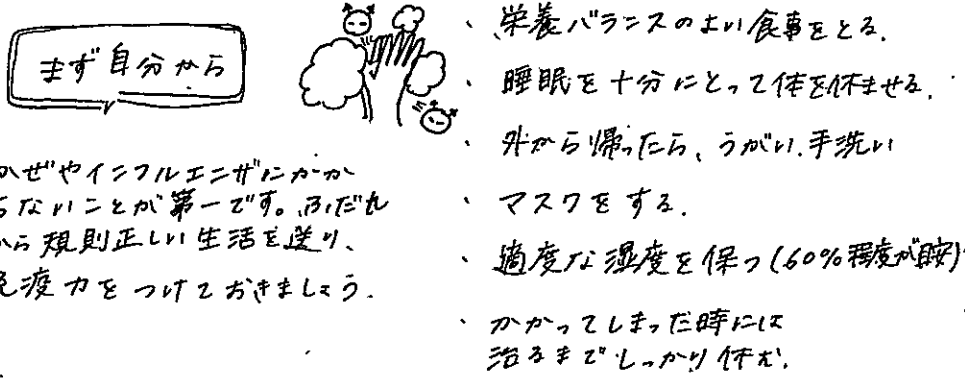 まず自分から
かぜやインフルエンザにかか
らないことが第一です。ふだん
から規則正しい生活を送り、
免疫力をつけておきましょう.
・栄養バランスのよい食事をとる.
・睡眠を十分にとって体を休ませる.
・外から帰ったら、うがい.手洗い
・マスクをする.
・適度な湿度を保つ(60%程度が目安)
・かかってしまった時には
治るまでしっかり休む.